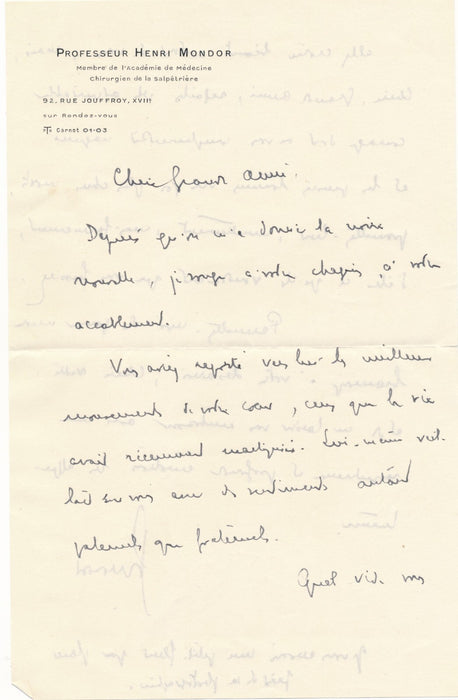 PROFESSEUR HENRI MONDOR
Membre de l'Académie de Médecine
Chirurgien de la Salpêtrière
92, RUE JOUFFROY, XVIIe
sur Rendez-vous
Carnot 01-03
Cher grand ami,
Depuis qu'on m'a donné la noire
nouvelle, je songe à votre chagrin, à votre
accablement.
Vous aviez reporté vers lui les meilleurs
mouvements de votre cœur, ceux que la vie
avait récemment . Lui-même
sur vous des sentiments autant
paternels que fraternels.
Quel vide